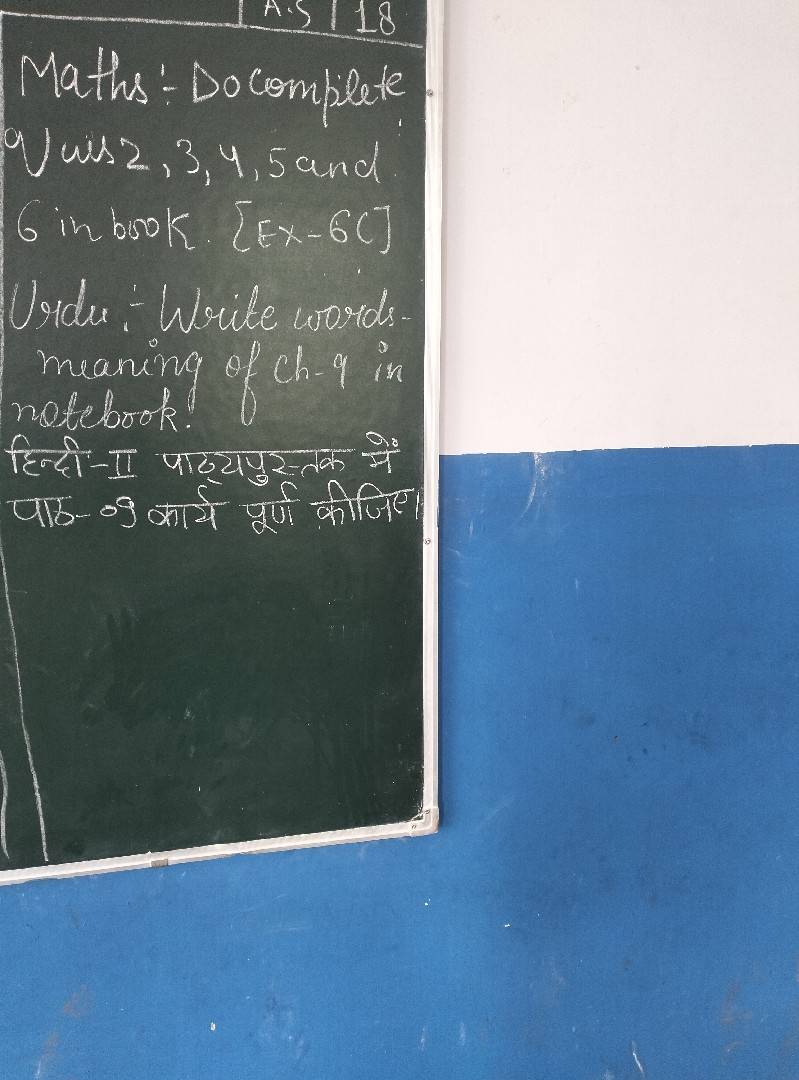 A.S 18
Maths :- Do complete
Qui's 2, 3, 4, 5 and
6 in book. [Ex-6C]
Urdu :- Write words-
meaning of ch-9 in
notebook.
हिन्दी-II पाठ्यपुस्तक में
पाठ-०9 कार्य पूर्ण कीजिए।